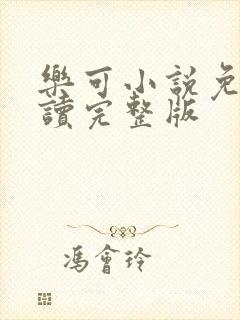 樂可小說免
讀完整版
馮會玲